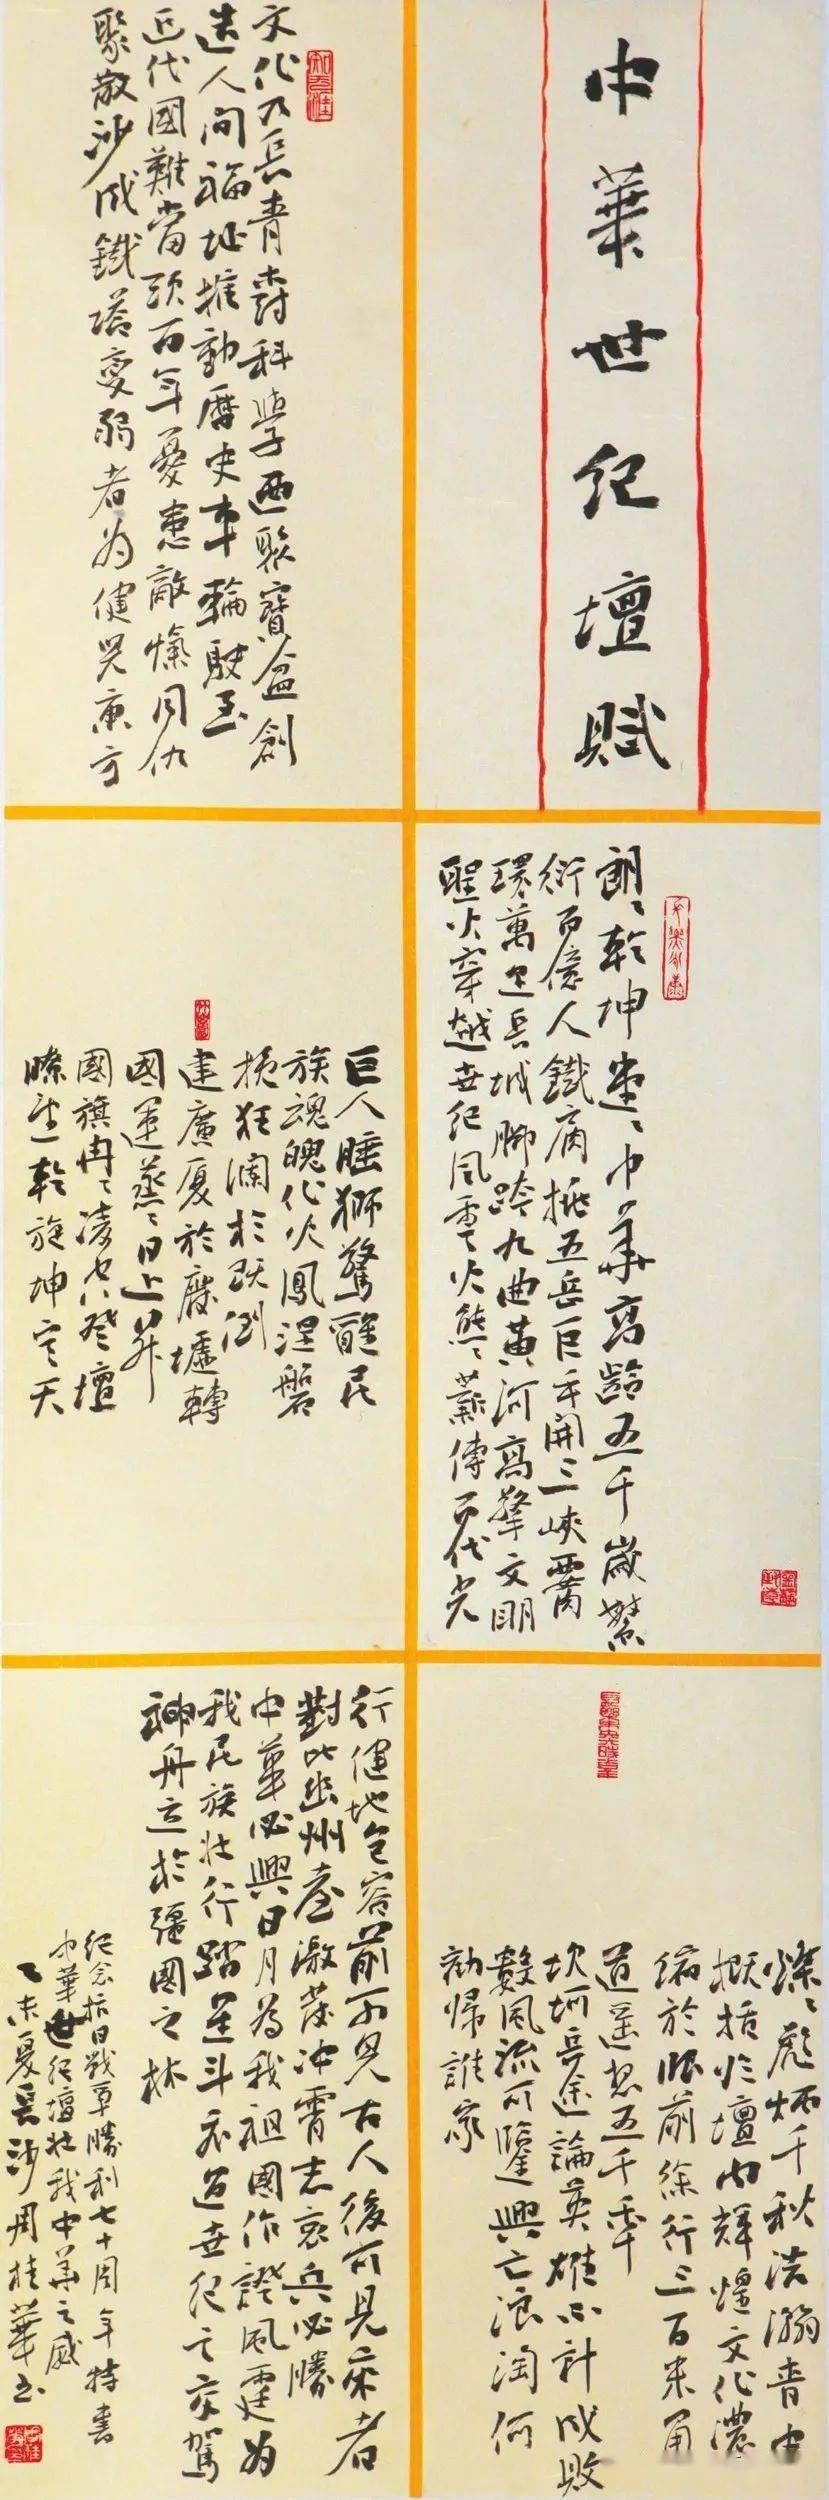 中華世紀壇賦
朗々乾坤堂々中華高齡五千歲繁
衍百億人鐵肩挑五岳巨手開三峽胸
環萬里長城腳跨九曲黃河高擎文明
聖火穿越世紀風雲火熊々薪傳百代光
燦々彪炳千秋浩瀚青史
概括於壇內輝煌文化濃
縮於眼前徐行三百米甬
道遥想五千年
坎坷長途論英雄不計成敗
數風流可鑒興亡浪淘何
劫歸誰家
文化乃長青樹科學迺聚寶盆創
造人間福址推動曆史車輪駛至
近代國難當頭百年憂患敵愾同仇
聚散沙成鐵塔變弱者為健兒東方
巨人睡獅驚醒民
族魂魄化火鳳涅磐
挽狂瀾於既倒
建廣廈於廢墟轉
國運蒸々日上昇
國旗冉々凌空登壇
瞭望乾旋坤定天
行健地包容前不見古人後不見來者
對此幽州臺激蕩沖霄志哀兵必勝
中華必興日月為我祖國作證風霆為
我民族壯行踏星斗過世紀之交駕
神舟立於強國之林
紀念抗日戰爭勝利七十周年特書
中華世紀壇壯我中華之威
乙未夏長沙周桂華書